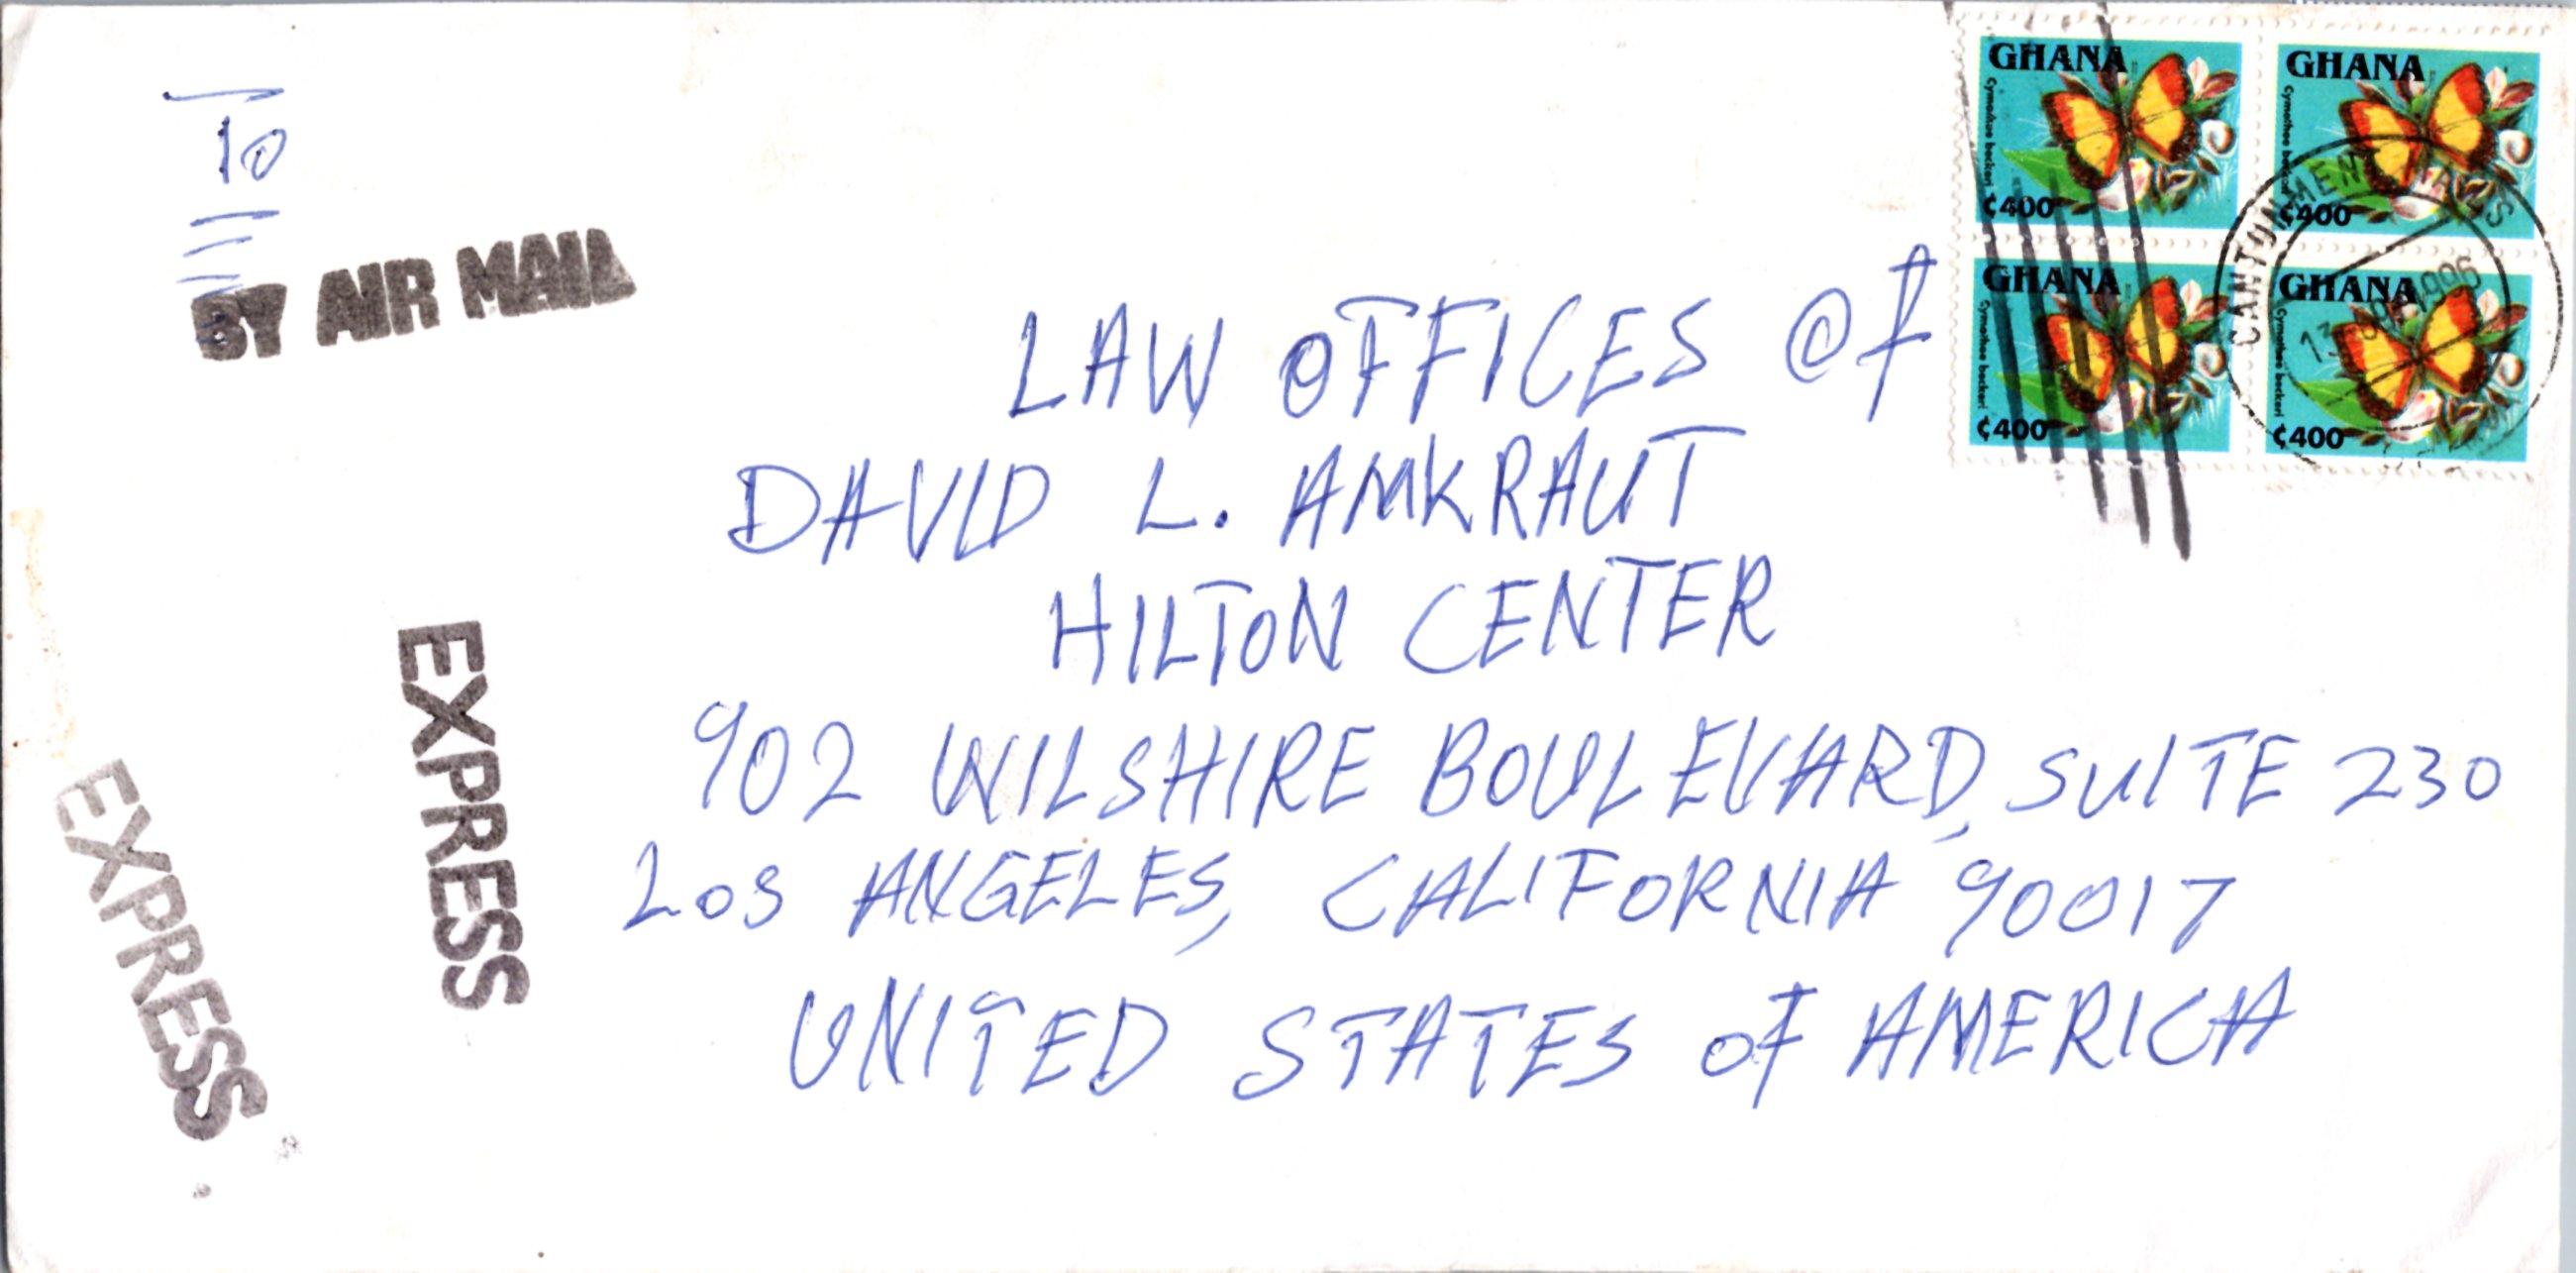 To
BY AIR MAIL
GHANA
Cymothoe beckeri
¢400
GHANA
Cymothoe beckeri
¢400
GHANA
Cymothoe beckeri
¢400
GHANA
Cymothoe beckeri
¢400
CANTONMENTS
1996
LAW OFFICES Of
DAVID L. AMKRAUT
HILTON CENTER
902 WILSHIRE BOULEVARD, SUITE 230
LOS ANGELES, CALIFORNIA 90017
UNITED STATES OF AMERICA
EXPRESS
EXPRESS